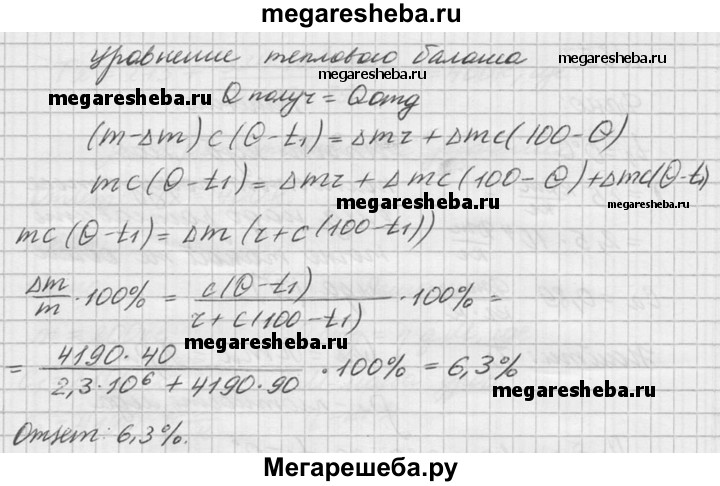 megaresheba.ru
уравнение теплового баланса
megaresheba.ru
megaresheba.ru Q получ = Q отд
(m-Δm) c (θ-t₁) = Δmr + Δmc(100-θ)
mc (θ-t₁) = Δmr + Δmc (100-θ) + Δmc(θ-t₁)
megaresheba.ru
mc (θ-t₁) = Δm (r + c (100-t₁))
Δm/m · 100% = c(θ-t₁)/(r + c(100-t₁)) · 100% =
megaresheba.ru
= 4190·40/(2,3·10⁶ + 4190·90) · 100% = 6,3%
megaresheba.ru
Ответ: 6,3%.
Мегарешеба.ру